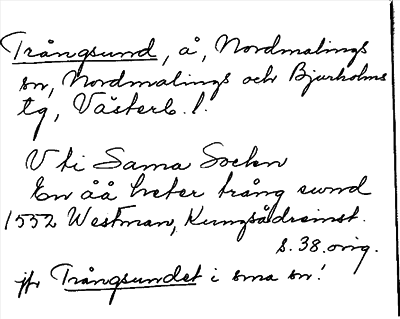 Trångsund, å, Nordmalings
sn, Nordmalings och Bjurholms
tg, Västerb. l.
V ti Sama Sochn
En åå heter trång sund
1552 Westman, Kungsådreinst.
s. 38. orig.
jfr Trångsundet i sma sn!